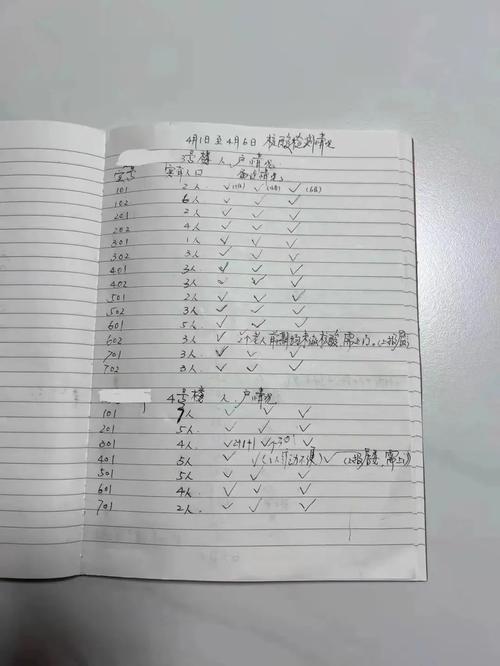 4月1日至4月6日 核酸检测情况
3号楼 人、户情况
室号 实有人口
101 2人 ✓(1日) ✓(4日) ✓(6日)
102 6人 ✓ ✓ ✓
201 2人 ✓ ✓ ✓
202 4人 ✓ ✓ ✓
301 1人 ✓ ✓ ✓
302 3人 ✓ ✓ ✓
401 3人 ✓ ✓ ✓
402 3人 ✓ ✓ ✓
501 2人 ✓ ✓ ✓
502 3人 ✓ ✓ ✓
601 5人 ✓ ✓ ✓
602 3人 2个老人前期均未做核酸,需上门。(上报居
701 3人 ✓ ✓ ✓
702 3人 ✓ ✓ ✓
4号楼 人、户情况
101 9人 ✓ ✓ ✓
201 5人 ✓ ✓ ✓
301 4人 ✓2+1+1 ✓
401 5人 ✓ ✓(1人行动不便)✓(上报居委,需上门)
501 5人 ✓ ✓ ✓
601 4人 ✓ ✓ ✓
701 2人 ✓ ✓ ✓